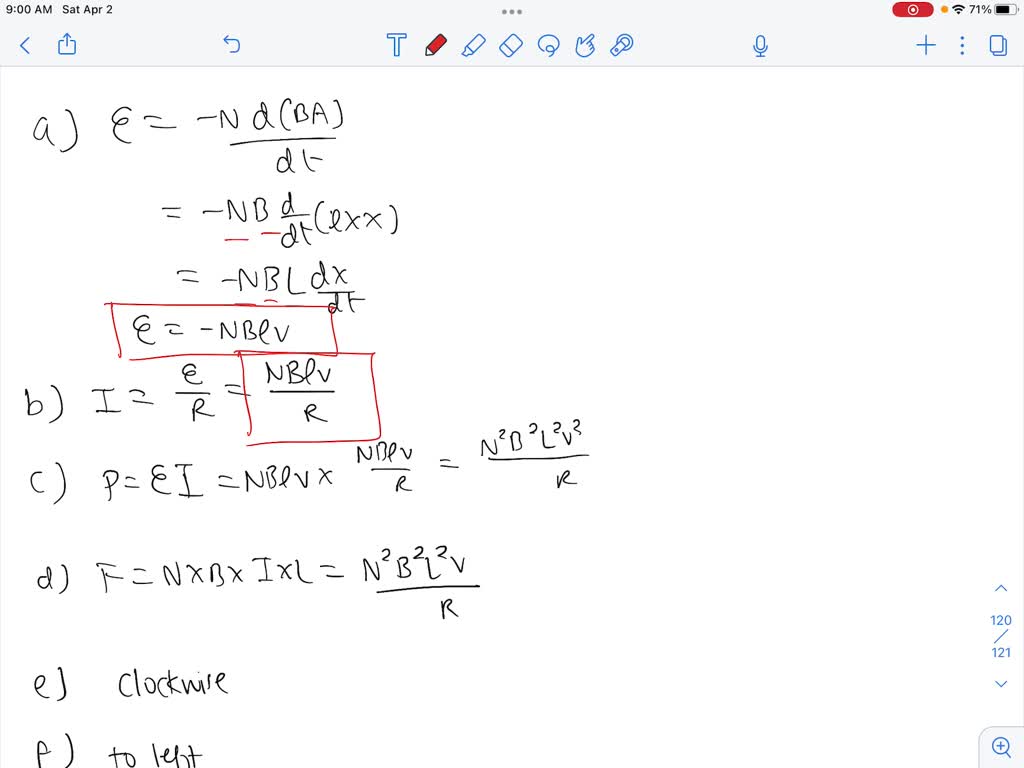 9:00 AM Sat Apr 2
71%
a) ε = -N d(BA)/dt
= -NB d/dt (l×x)
= -NBL dx/dt
ε = -NBlv
b) I = ε/R = NBlv/R
c) P = εI = NBlv × NBlv/R = N²B²L²V²/R
d) F = N×B×I×L = N²B²L²V/R
120
/
121
e) Clockwise
f) to left